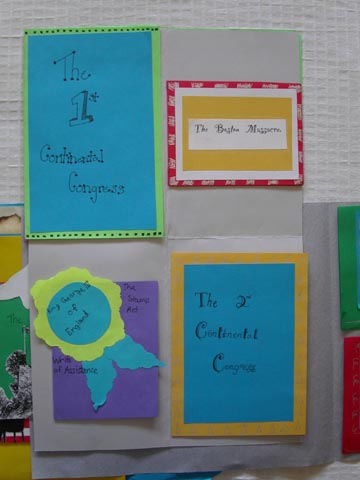 The
1st
Continental
Congress
The Boston Massacre
King George III
of
England
The
Stamp
Act
Writs
of Assistance
The 2nd
Continental
Congress
The